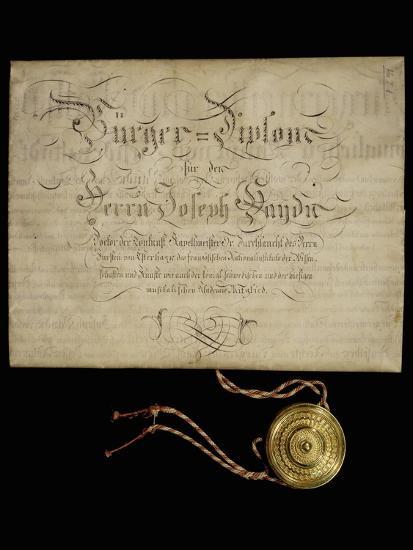 Bürger=Diplom
für den
Herrn Joseph Haydn
Doktor der Tonkunst Kapellmeister Sr. Durchlaucht des Herrn
Fürsten von Esterhazy des französischen Nationalinstituts der Wissen
schaften und Künste wie auch der königl. schwedischen und der hiesigen
musikalischen Akademie Mitglied.